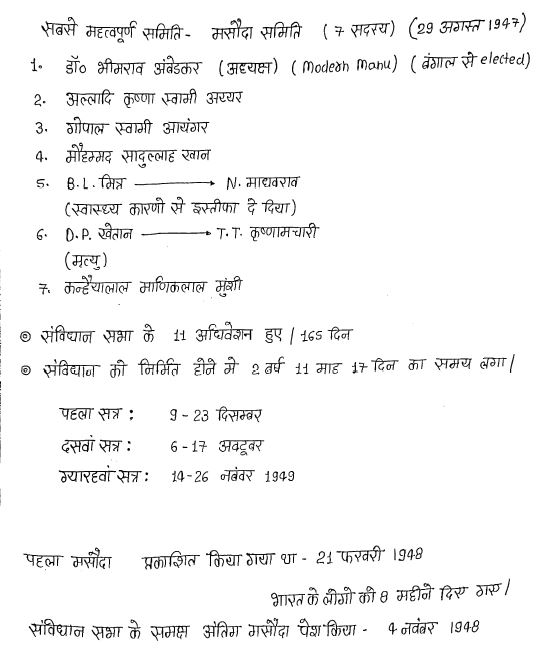 सबसे महत्वपूर्ण समिति - मसौदा समिति ( 7 सदस्य) (29 अगस्त 1947)
1. डॉ० भीमराव अंबेडकर (अध्यक्ष) ( Modern Manu) ( बंगाल से elected)
2. अल्लादि कृष्णा स्वामी अय्यर
3. गोपाल स्वामी आयंगर
4. मौहम्मद सादुल्लाह खान
5. B.L. मित्र → N. माधवराव
(स्वास्थ्य कारणो से इस्तीफा दे दिया)
6. D.P. खेतान → T.T. कृष्णामचारी
(मृत्यु)
7. कन्हैयालाल माणिकलाल मुंशी
⊙ संविधान सभा के 11 अधिवेशन हुए / 165 दिन
⊙ संविधान को निर्मित होने मे 2 वर्ष 11 माह 17 दिन का समय लगा /
पहला सत्र : 9 - 23 दिसम्बर
दसवां सत्र : 6 - 17 अक्टूबर
ग्यारहवां सत्र : 14-26 नवंबर 1949
पहला मसौदा प्रकाशित किया गया था - 21 फरवरी 1948
भारत के लोगो को 8 महीने दिए गए /
संविधान सभा के समक्ष अंतिम मसौदा पेश किया - 4 नवंबर 1948